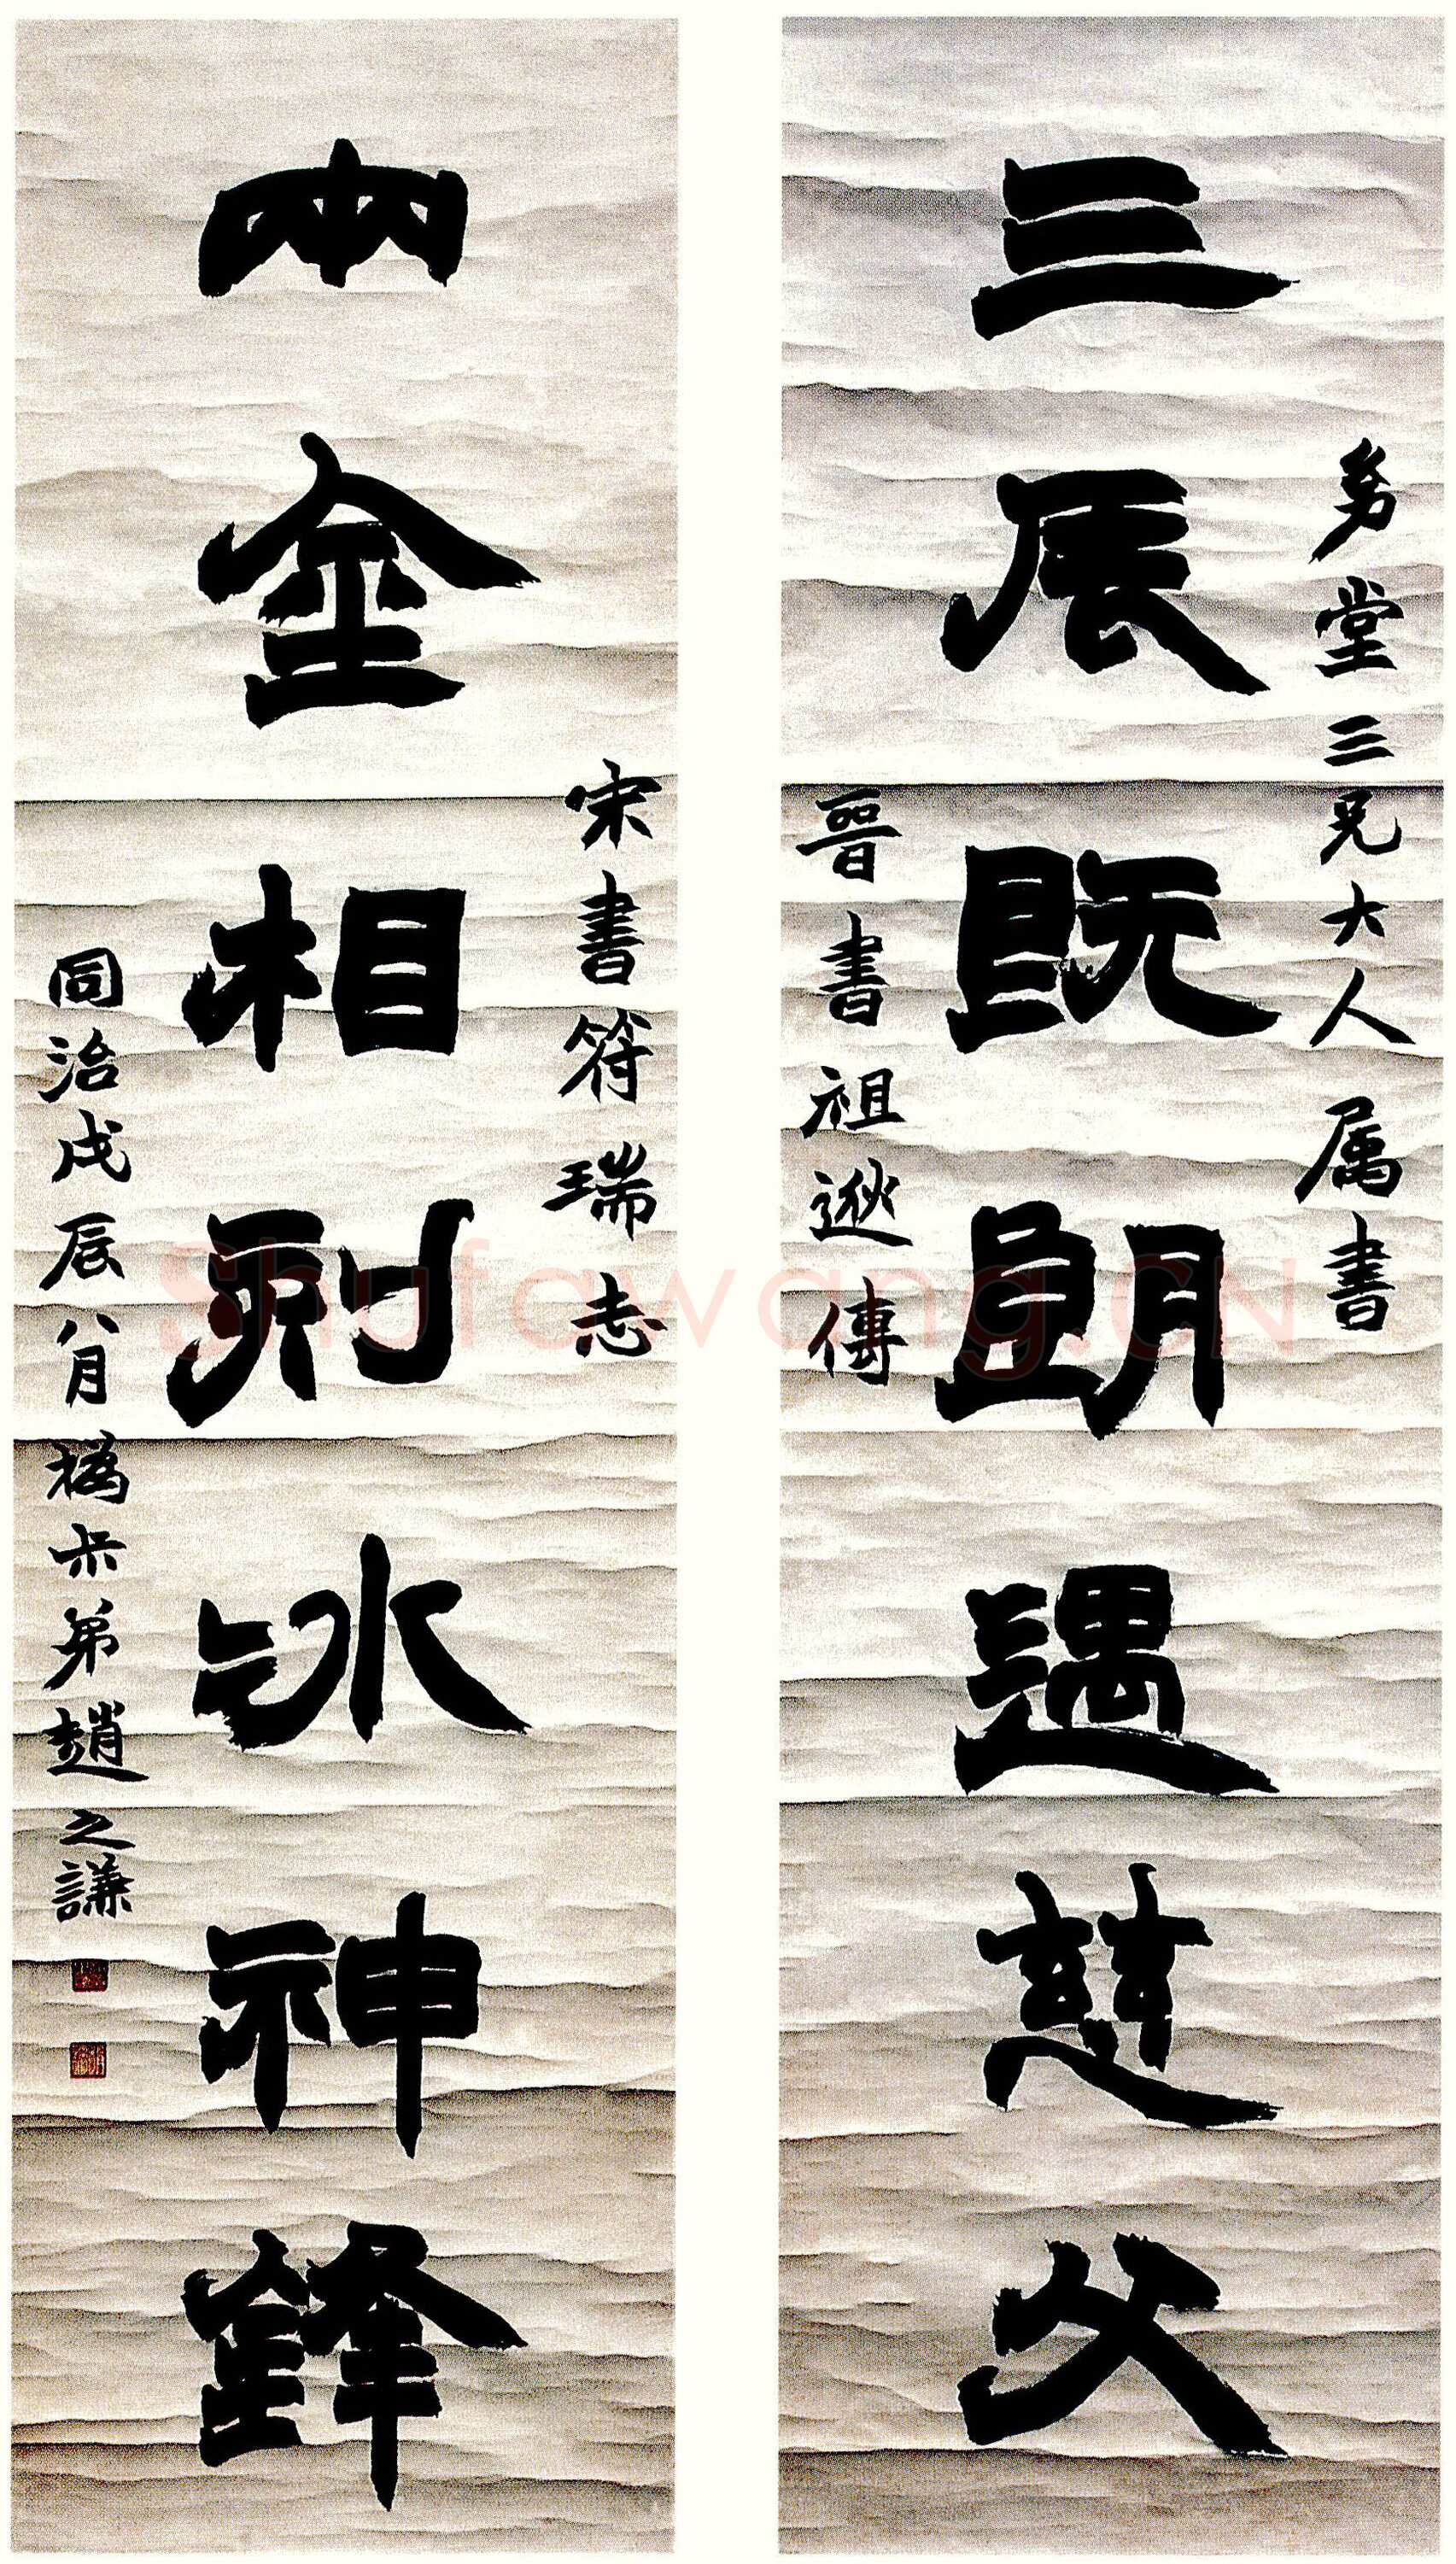 堂三兄大人屬書
三辰既朗遇慈父
晉書祖逖傳
宋書符瑞志
兩金相刻神鋒
同治戊辰八月撝尗弟趙之謙
Shufawang.CN